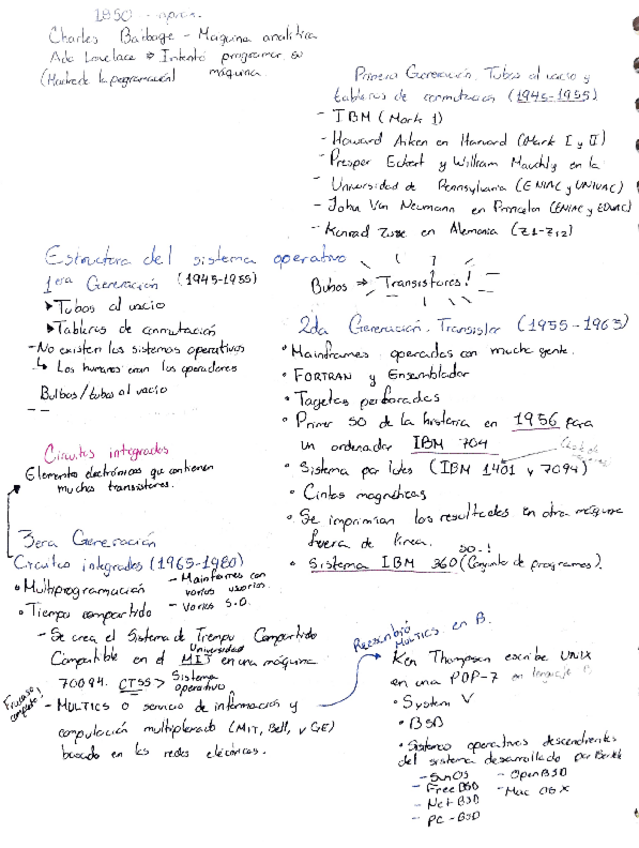 1850 - aprox.
Charles Baibage - Maquina analitica
Ada Lovelace Intentó programar su
(Madre de la programación) máquina.
Primera Generación. Tubos al vacio y
tableros de conmutación (1945-1955)
- IBM (Mark 1)
- Howard Aiken en Harvard (Mark I y II)
- Presper Eckert y William Mauchly en la
Universidad de Pennsylvania (ENIAC y UNIVAC)
- John Von Neumann en Princeton (ENIAC y EDVAC)
- Konrad Zuse en Alemania (Z1-Z12)
Estructura del sistema operativo
1era Generación (1945-1955)
▸Tubos al vacio
▸Tableros de conmutación
- No existen los sistemas operativos
↳ Los humanos eran los operadores
Bulbos/tubos al vacio
Bubos ⇒ Transistores!
2da Generación. Transistor (1955-1963)
• Mainframes operadas con mucha gente.
• FORTRAN y Ensamblador
• Tagetas perforadas
• Primer SO de la historia en 1956 para
un ordenador IBM 704
• Sistema por lotes (IBM 1401 y 7094)
• Cintas magnéticas
• Se imprimian los resultados en otra máquina
fuera de linea.
SO-!
• Sistema IBM 360 (Conjunto de programas).
Circuitos integrados
Elementos electrónicos que contienen
muchos transistores.
3era Generación
Circuitos integrados (1965-1980)
• Multiprogramación - Mainframes con
varios usuarios.
• Tiempo compartido - Varios S.O.
- Se crea el Sistema de Tiempo Compartido
Compatible en el Universidad MIT en una máquina
70094. CTSS > Sistema
operativo
Fracaso
completo!
- MULTICS o servicio de información y
computación multiplexado (MIT, Bell, y GE)
basado en las redes eléctricas.
Reescribió
MULTICS en B.
Ken Thompson escribe UNIX
en una PDP-7 en lenguaje
• System V
• BSD
• Sistemas operativos descendientes
del sistema desarrollado por
- SunOS - OpenBSD
- FreeBSD - Mac OS X
- NetBSD
- PC-BSD